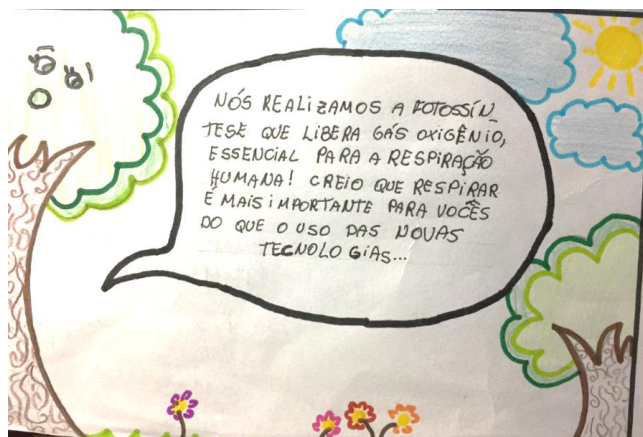 NÓS REALIZAMOS A FOTOSSÍN_
TESE QUE LIBERA GÁS OXIGÊNIO,
ESSENCIAL PARA A RESPIRAÇÃO
HUMANA! CREIO QUE RESPIRAR
É MAIS IMPORTANTE PARA VOCÊS
DO QUE O USO DAS NOVAS
TECNOLOGIAS...